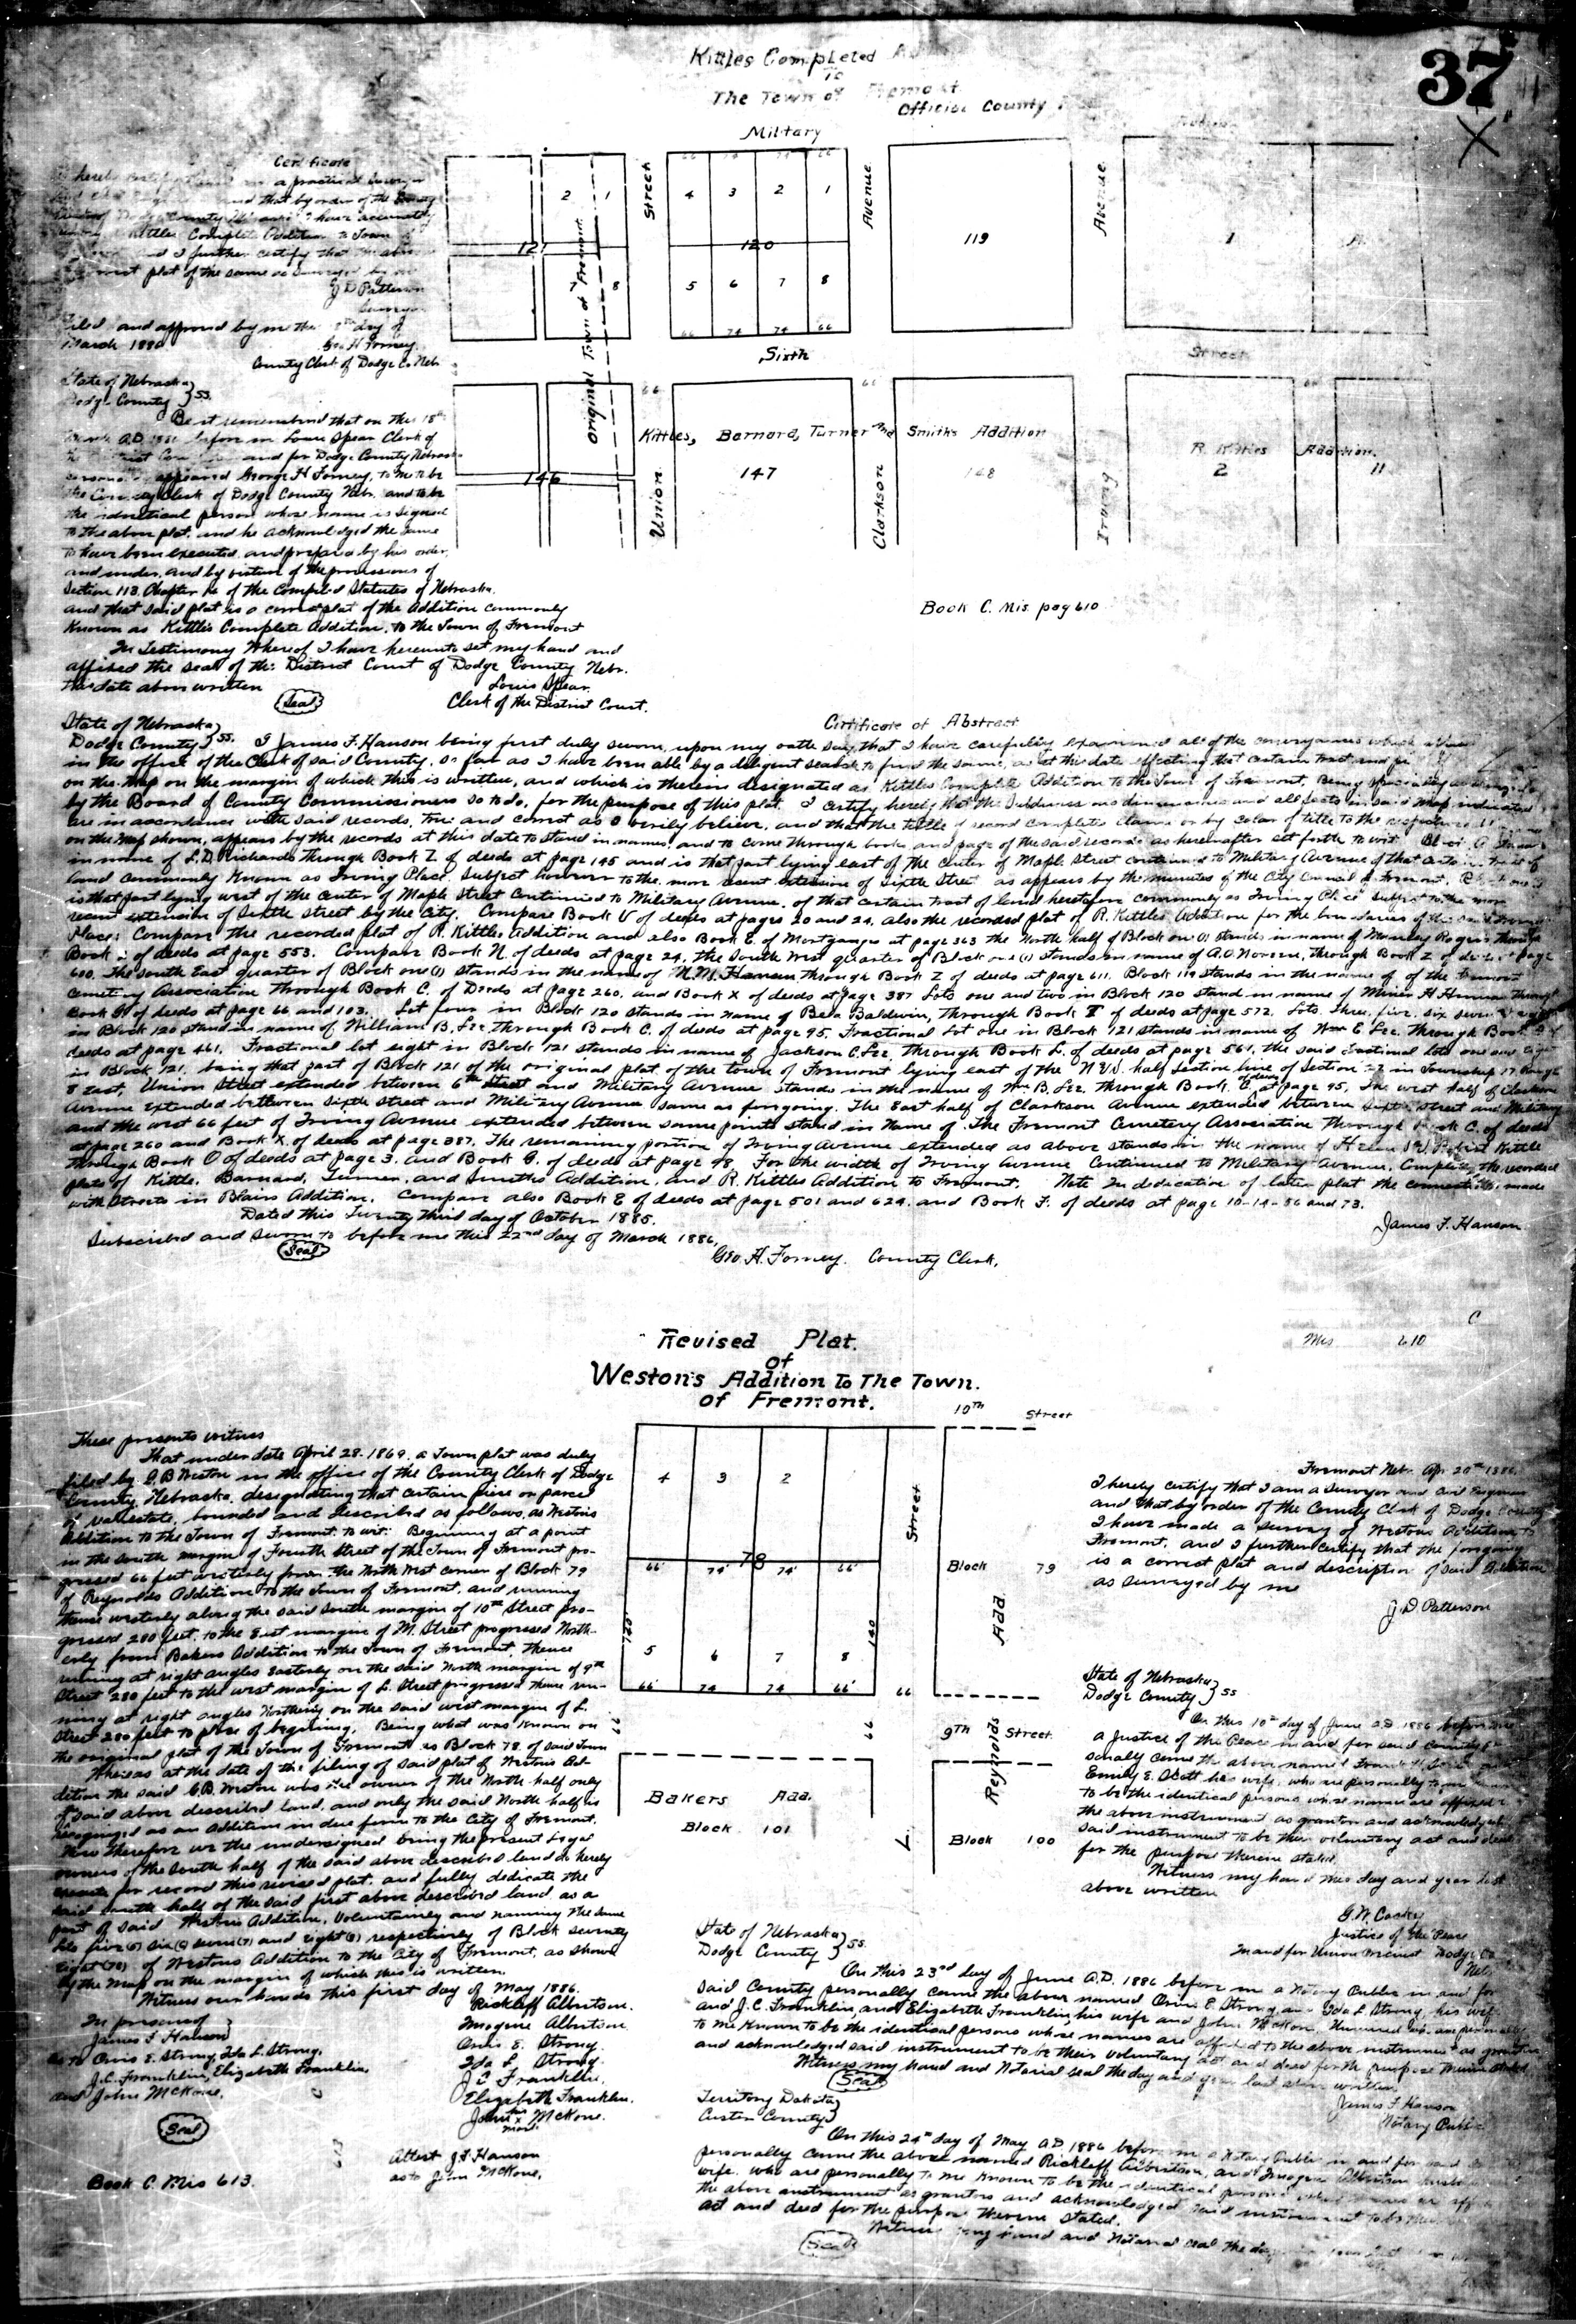 37
Kittles Completed
To
The Town of Fremont.
Official County
Military
Certificate
hereby certify a practical
and that by order of the
Dodge County I have accurately
Kittles Complete Addition to Town
and I further certify that
plat of the same as surveyed by
J D Patterson
Surveyor
Filed and approved by me the day of
March 1886
Geo H Forney
County Clerk of Dodge Co Nebr
State of Nebraska
Dodge County } ss.
Be it remembered that on the 18th
A.D. 1886 before me Louis Spear Clerk of
and for Dodge County Nebraska
appeared George H Forney, to me to be
the County Clerk of Dodge County Nebr. and to be
the identical person whose name is signed
to the above plat, and he acknowledged the same
to have been executed, and prepared by his order,
and under, and by virtue of the provisions of
Section 113, Chapter 14 of the Compiled Statutes of Nebraska.
and that said plat is a correct plat of the addition commonly
known as Kittles Complete Addition, to the Town of Fremont
In Testimony Whereof I have hereunto set my hand and
affixed the seal of the District Court of Dodge County Nebr.
the date above written
Louis Spear.
Seal
Clerk of the District Court.
2 1
121
7 8
original Town of Fremont
Street
66 74 74 66
4 3 2 1
120
5 6 7 8
66 74 74 66
Avenue
119
Avenue
1
A
Sixth
Street
66
66
Kittles, Barnard, Turner and Smiths Addition
R Kittles Addition.
146
147
148
2
11
Union
Clarkson
Irving
Book C. Mis. pag 610
Certificate of Abstract
State of Nebraska
Dodge County } ss. I James F. Hanson being first duly sworn, upon my oath say, that I have carefully examined all of the conveyances which
in the office of the Clerk of said County, so far as I have been able by a diligent search to find the same, as at this date effecting that certain tract
on the map on the margin of which this is written, and which is therein designated as Kittles Complete Addition to the Town of Fremont,
by the Board of County Commissioners so to do, for the purpose of this plat. I certify hereby that the and all facts in said map indicated
are in accordance with said records, true and correct as I verily believe, and that the title of record complete or by color of title to the
on the map shown, appears by the records at this date to stand in names, and to come through books and page of the said records as hereafter set forth to wit. Block A
in name of L.D. Richards through Book Z of deeds at page 145 and is that part lying east of the center of Maple Street continued to Military Avenue of that
land commonly known as Irving Place. Subject however to the more recent extension of Sixth Street as appears by the minutes of the City Council of Fremont.
is that part lying west of the center of Maple Street Continued to Military Avenue, of that certain tract of land heretofore commonly as Irving Place subject to the more
recent extension of Sixth street by the City. Compare Book V of deeds at pages 20 and 24, also the recorded plat of R. Kittles Addition for the boundaries of the
Place; Compare the recorded plat of R. Kittles Addition and also Book E. of Mortgages at page 363 the North half of Block one (1) stands in name of Rogers through
Book of deeds at page 553. Compare Book N. of deeds at page 24, the South West quarter of Block one (1) stands in name of A.O. through Book Z of deeds at page
600. The South East quarter of Block one (1) stands in the name of through Book Z of deeds at page 611. Block 119 stands in the name of of the Fremont
Cemetery Association through Book C. of Deeds at page 260, and Book X of deeds at page 387 Lots one and two in Block 120 stand in name of through
Book of deeds at page 66 and 103. Lot four in Block 120 stands in name of Bela Baldwin, through Book of deeds at page 572. Lots three, five, six seven & eight
in Block 120 stand in name of William B. Lee through Book C. of deeds at page 95. Fractional Lot one in Block 121 stands in name of Wm E Lee. through Book
deeds at page 461. Fractional lot eight in Block 121 stands in name of Jackson C. Lee, through Book L. of deeds at page 561, the said fractional lots one and eight
in Block 121, being that part of Block 121 of the original plat of the town of Fremont lying east of the half section line of Section in Township 17, Range
8 East, Union Street extended between 6th Street and Military Avenue stands in the name of Wm B. Lee through Book. at page 95, The west half of Clarkson
Avenue Extended between Sixth Street and Military Avenue same as foregoing. The East half of Clarkson Avenue extended between Sixth Street and Military
and the west 66 feet of Irving Avenue extended between same points stand in Name of The Fremont Cemetery Association through Book C. of deeds
at page 260 and Book X. of deeds at page 387, The remaining portion of Irving Avenue extended as above stands in the name of Kittle
through Book O of deeds at page 3. and Book G. of deeds at page 98 For the width of Irving Avenue Continued to Military Avenue, Compare the recorded
plats of Kittle, Barnard, Turner, and Smiths Addition, and R. Kittles Addition to Fremont. Note In dedication of later plat the connection made
with Streets in Blairs Addition. Compare also Book E of deeds at page 501 and 624. and Book F. of deeds at page 10-14-56 and 73.
Dated this Twenty third day of October 1885.
James F. Hanson
Subscribed and Sworn to before me this 22nd day of March 1886,
Seal
Geo. H. Forney. County Clerk.
C
Mis 610
Revised Plat.
of
Westons Addition To The Town.
of Fremont.
10th Street
4 3 2
78
66 74 74 66
140
140
5 6 7 8
66 74 74 66 66
Street
Block 79
Add.
Reynolds
66
9th Street.
Bakers Add.
Block 101
L.
Block 100
These presents witness
That under date April 28. 1869. a Town plat was duly
filed by C. B Weston in the office of the County Clerk of Dodge
County, Nebraska. designating that certain piece or parcel
of real estate, bounded and described as follows, as Westons
Addition to the Town of Fremont. to wit: Beginning at a point
in the south margin of Fourth Street of the Town of Fremont pro-
gressed 66 feet westerly from the North West corner of Block 79
of Reynolds Addition to the Town of Fremont, and running
thence westerly along the said South margin of 10th Street pro-
gressed 280 feet. to the East margin of M. Street progressed North-
erly from Bakers Addition to the Town of Fremont, thence
running at right angles Easterly on the said North margin of 9th
Street 280 feet to the west margin of L. Street progressed thence run-
ning at right angles Northerly on the said west margin of L.
Street 280 feet to place of begining. Being what was known on
the original plat of the Town of Fremont as Block 78. of said Town
Whereas at the date of the filing of said plat of Westons Ad-
dition the said C.B. Weston was the owner of the North half only
of said above described land, and only the said North half is
recognized as an Addition in due form to the City of Fremont.
Now therefore we the undersigned being the present legal
owners of the South half of the said above described land do hereby
execute for record this revised plat, and fully dedicate the
said south half of the said first above described land, as a
part of said Westons Addition, Voluntarily and naming the same
lots five (5) six (6) seven (7) and eight (8) respectively of Block seventy
eight (78) of Westons Addition to the City of Fremont, as shown
by the map on the margin of which this is written.
Witness our hands this first day of May 1886.
In presence of
James F Hanson
as to Orvis E. Strong, Ida L. Strong,
J.C. Franklin, Elizabeth Franklin,
and John McKone.
Rickleff Albertson.
Imogene Albertson.
Orvis E. Strong.
Ida L Strong.
J C Franklin.
Elizabeth Franklin.
John his x mark McKone.
Seal
Attest J.F. Hanson
as to John McKone,
Book C. Mis 613.
Fremont Neb. Apr 20th 1886.
I hereby certify that I am a Surveyor and Civil Engineer
and that by order of the County Clerk of Dodge County
I have made a survey of Westons Addition to
Fremont. and I further certify that the foregoing
is a correct plat and description of said Addition
as surveyed by me
J. D Patterson
State of Nebraska
Dodge County } ss
On this 10th day of June A.D. 1886 before me
a Justice of the Peace in and for said County
sonally came the above named Frank
Emily E. Scott his wife, who are personally to me
to be the identical persons whose names are affixed to
the above instrument as grantors and acknowledged
said instrument to be their voluntary act and deed
for the purpose therein stated.
Witness my hand this day and year last
above written
Justice of the Peace
In and for Union Precinct Dodge Co
Neb.
State of Nebraska
Dodge County } ss.
On this 23rd day of June A.D. 1886 before me a Notary Public in and for
said County personally came the above named Orvis E Strong, and Ida L. Strong, his wife
and J.C. Franklin, and Elizabeth Franklin, his wife and John McKone, Unmarried who are personally
to me known to be the identical persons whose names are affixed to the above instrument as grantors
and acknowledged said instrument to be their voluntary act and deed for the purpose therein stated
Witness my hand and Notarial seal the day and year last above written.
Seal
James F Hanson
Notary Public
Territory Dakota
Custer County }
On this 24th day of May A.D. 1886 before me a Notary Public in and for said
personally came the above named Rickleff Albertson, and Imogene Albertson
wife. who are personally to me known to be the identical persons whose names are
the above instrument as grantors and acknowledged said instrument to be their
act and deed for the purpose therein stated.
Witness my hand and Notarial seal the day
Seal